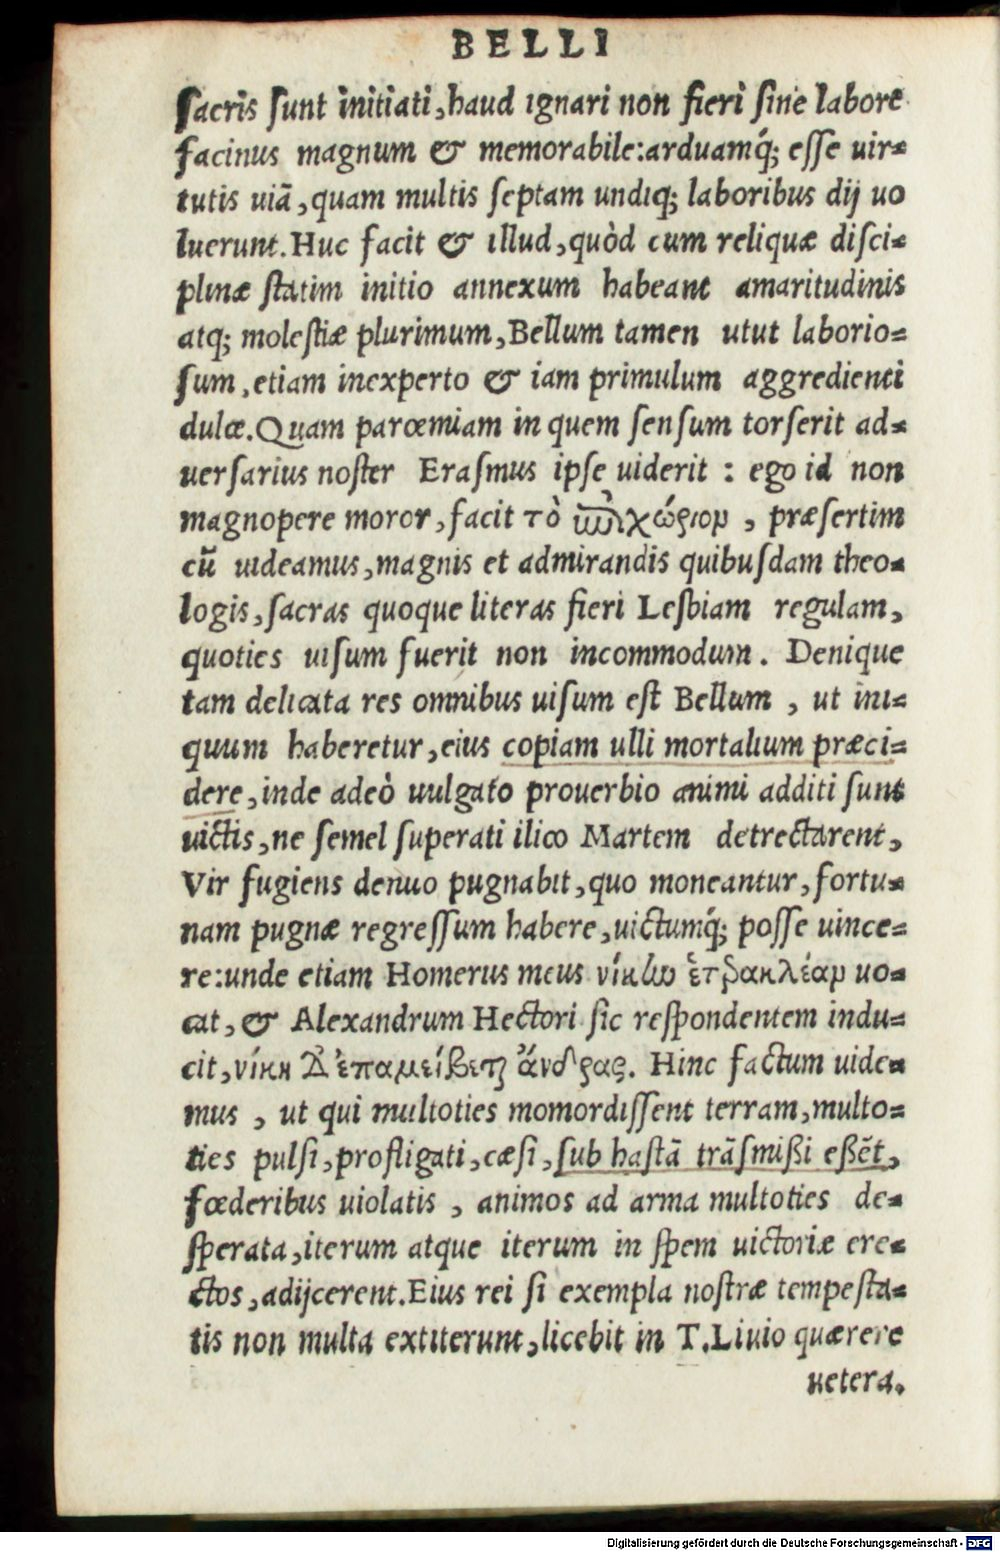 BELLI
sacris sunt initiati, haud ignari non fieri sine labore
facinus magnum & memorabile: arduamq́; esse uir=
tutis uiā, quam multis septam undiq; laboribus dij uo
luerunt. Huc facit & illud, quòd cum reliquæ disci=
plinæ statim initio annexum habeant amaritudinis
atq; molestiæ plurimum, Bellum tamen utut laborio=
sum, etiam inexperto & iam primulum aggredienti
dulce. Quam parœmiam in quem sensum torserit ad=
uersarius noster Erasmus ipse uiderit : ego id non
magnopere moror, facit τὸ , præsertim
cū uideamus, magnis et admirandis quibusdam theo=
logis, sacras quoque literas fieri Lesbiam regulam,
quoties uisum fuerit non incommodum. Denique
tam delicata res omnibus uisum est Bellum , ut ini=
quum haberetur, eius copiam ulli mortalium præci=
dere, inde adeò uulgato prouerbio animi additi sunt
uictis, ne semel superati ilico Martem detrectarent,
Vir fugiens denuo pugnabit, quo moneantur, fortu=
nam pugnæ regressum habere, uictumq́; posse uince=
re: unde etiam Homerus meus νίκην ἑτεραλκέαν uo=
cat, & Alexandrum Hectori sic respondentem indu=
cit, νίκη δ' ἐπαμείβεται ἄνδρας. Hinc factum uide=
mus , ut qui multoties momordissent terram, multo=
ties pulsi, profligati, cæsi, sub hastā trāsmißi eßēt,
fœderibus uiolatis , animos ad arma multoties de=
sperata, iterum atque iterum in spem uictoriæ ere=
ctos, adijcerent. Eius rei si exempla nostræ tempesta=
tis non multa extiterunt, licebit in T. Liuio quærere
uetera.
Digitalisierung gefördert durch die Deutsche Forschungsgemeinschaft - DFG